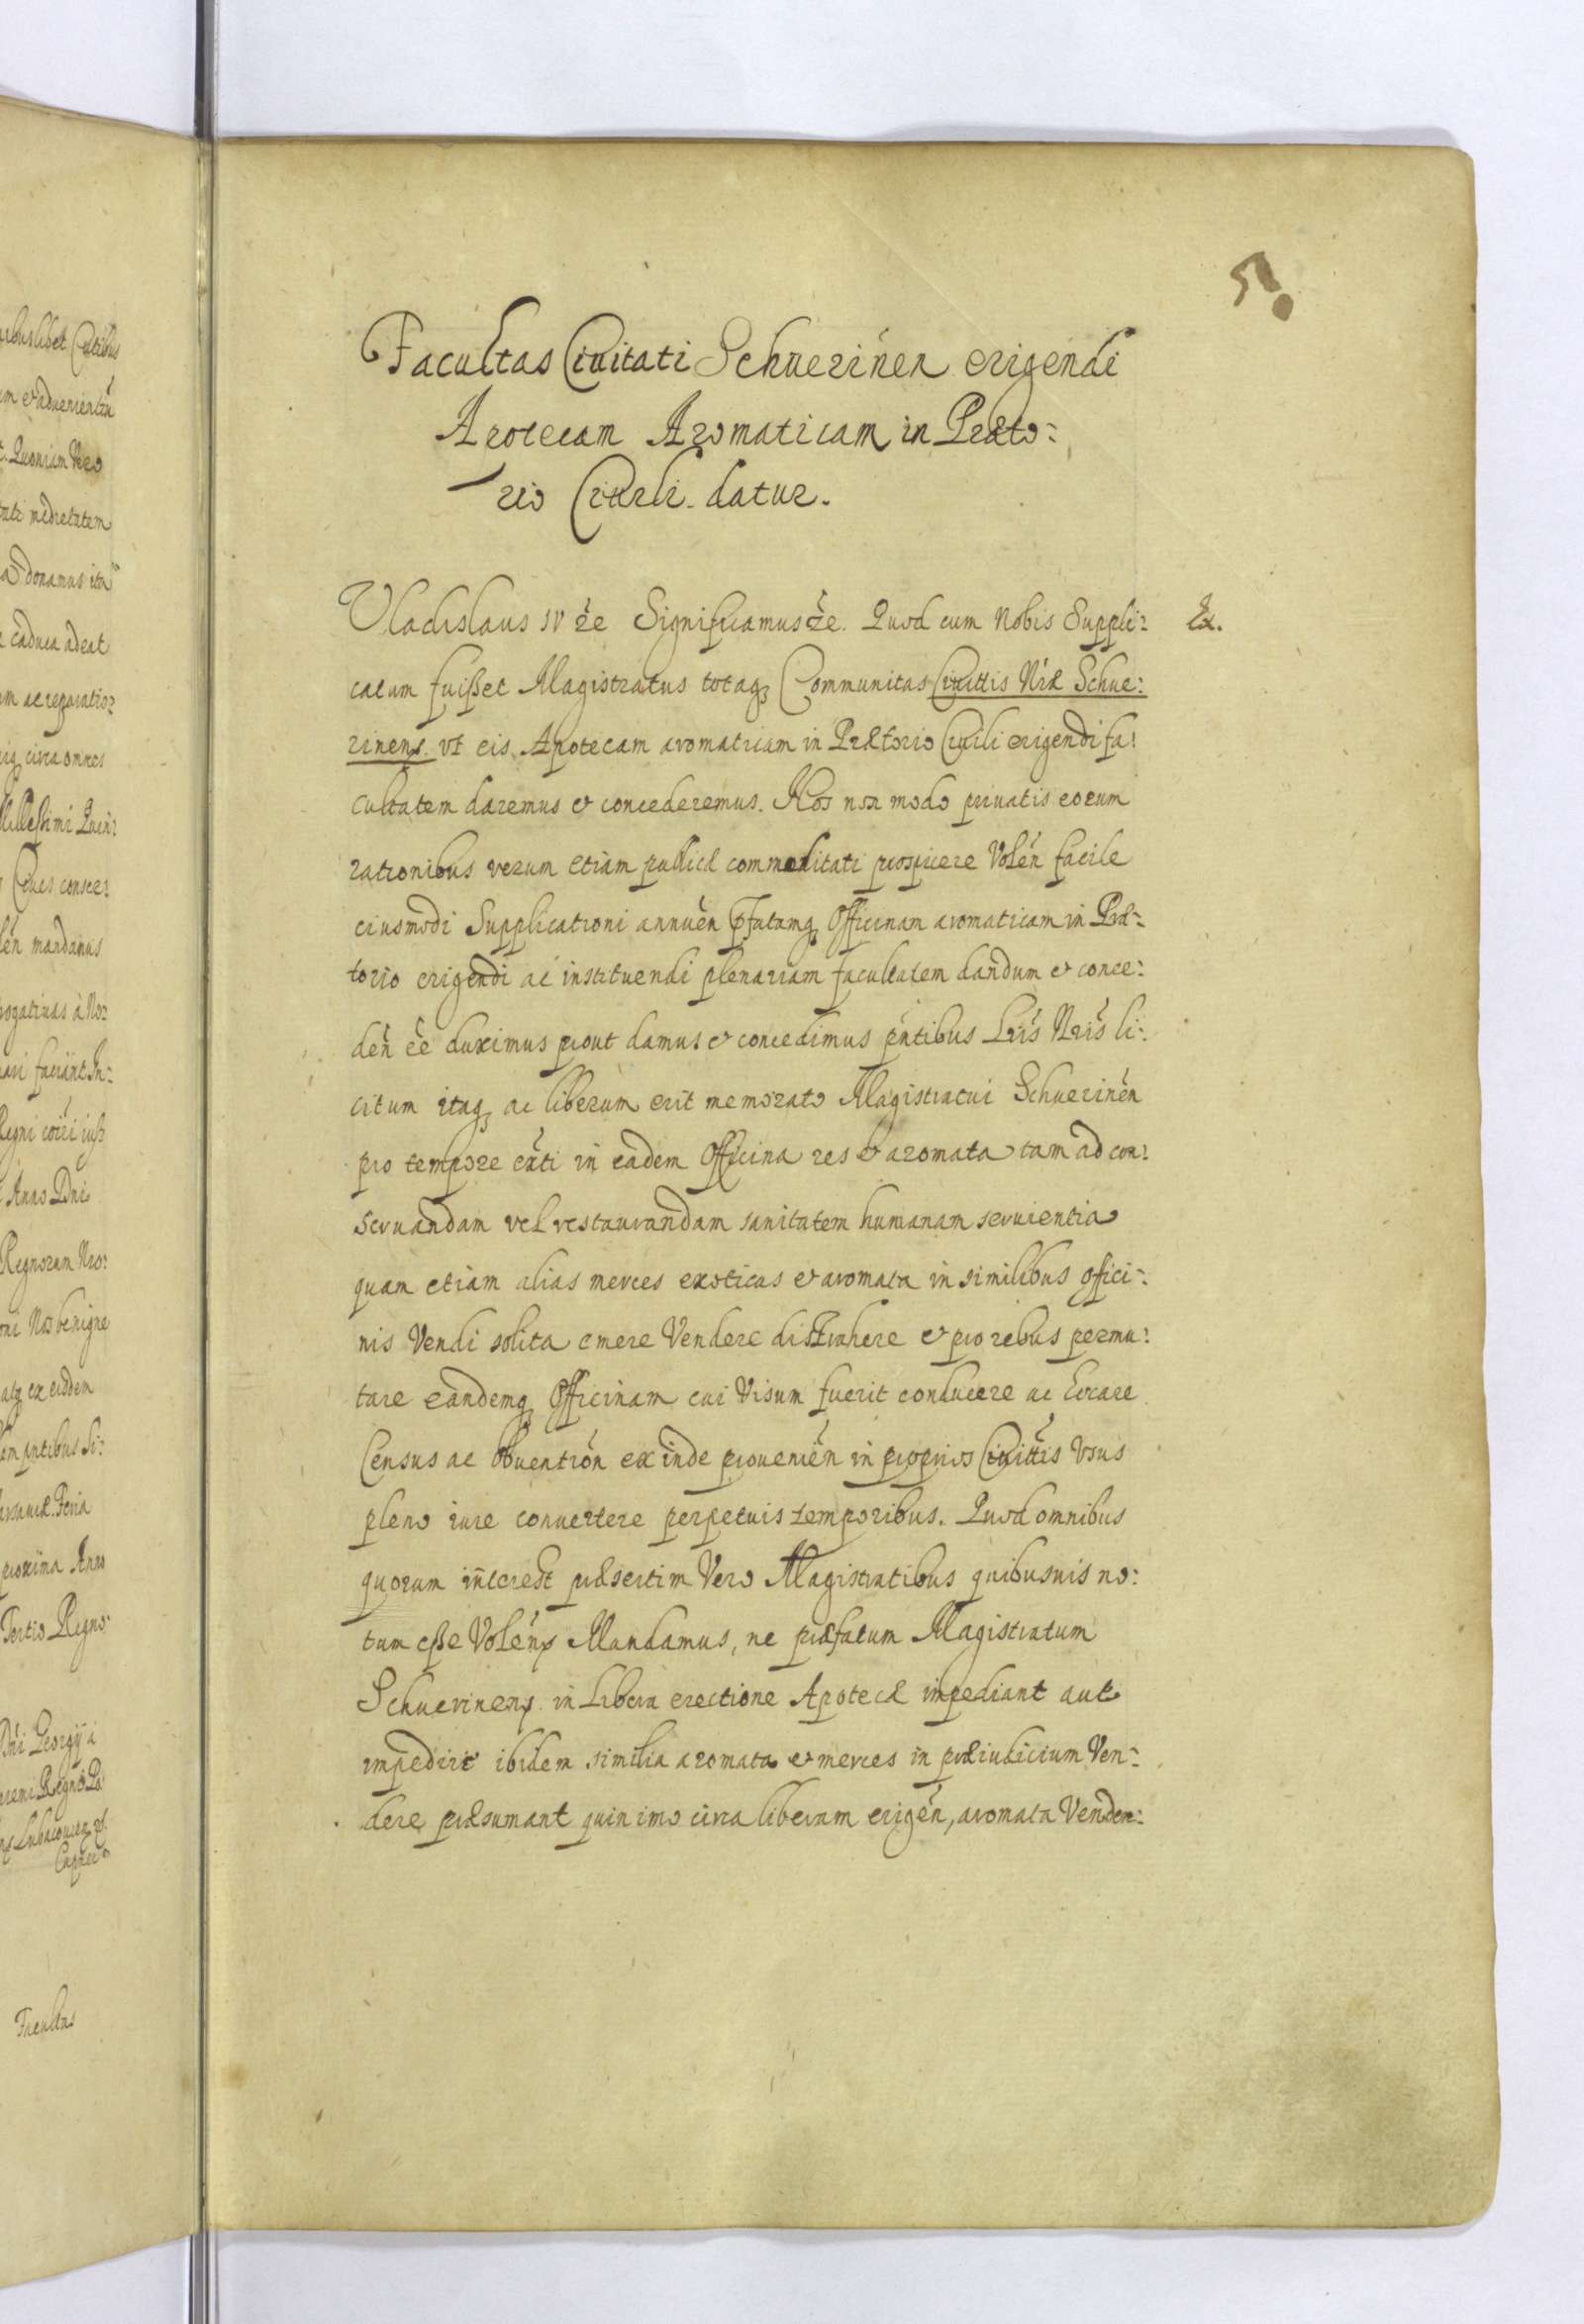 51
Facultas Ciuitati Schuerinen erigendi
Apotecam Aromaticam in Præto:
rio Ciuili datur.
Vladislaus IV &c Significamus &c. Quod cum Nobis Suppli: Ex.
catum fuisset Magistratus totaq Communitas Ciuittis Nræ Schue:
rinens. vt eis Apotecam aromaticam in Prætorio Ciuili erigendi fa:
cultatem daremus et concederemus. Nos non modo priuatis eorum
rationibus verum etiam publicæ commoditati prospicere Volen facile
eiusmodi Supplicationi annuen pfatamq Officinam aromaticam in Præ:
torio erigendi ac instituendi plenariam facultatem dandum et conce:
den ee duximus prout damus et concedimus pntibus Lris Nris li:
citum itaq ac liberum erit memorato Magistratui Schuerinen
pro tempore exti in eadem Officina res et aromata tam ad con:
seruandam vel restaurandam sanitatem humanam seruientia
quam etiam alias merces exoticas et aromata in similibus offici:
nis Vendi solita emere Vendere distrahere et pro rebus permu:
tare eandemq Officinam cui Visum fuerit conducere ac locare
Census ac obuention exinde prouenien in proprios Ciuittis Vsus
pleno iure conuertere perpetuis temporibus. Quod omnibus
quorum interest præsertim Vero Magistratibus quibusuis no:
tum esse Volens Mandamus, ne præfatum Magistratum
Schuerinens. in libera erectione Apotecæ impediant aut
impediri ibidem similia aromata et merces in præiudicium Ven:
dere præsumant quin imo circa liberam erigen, aromata Venden: